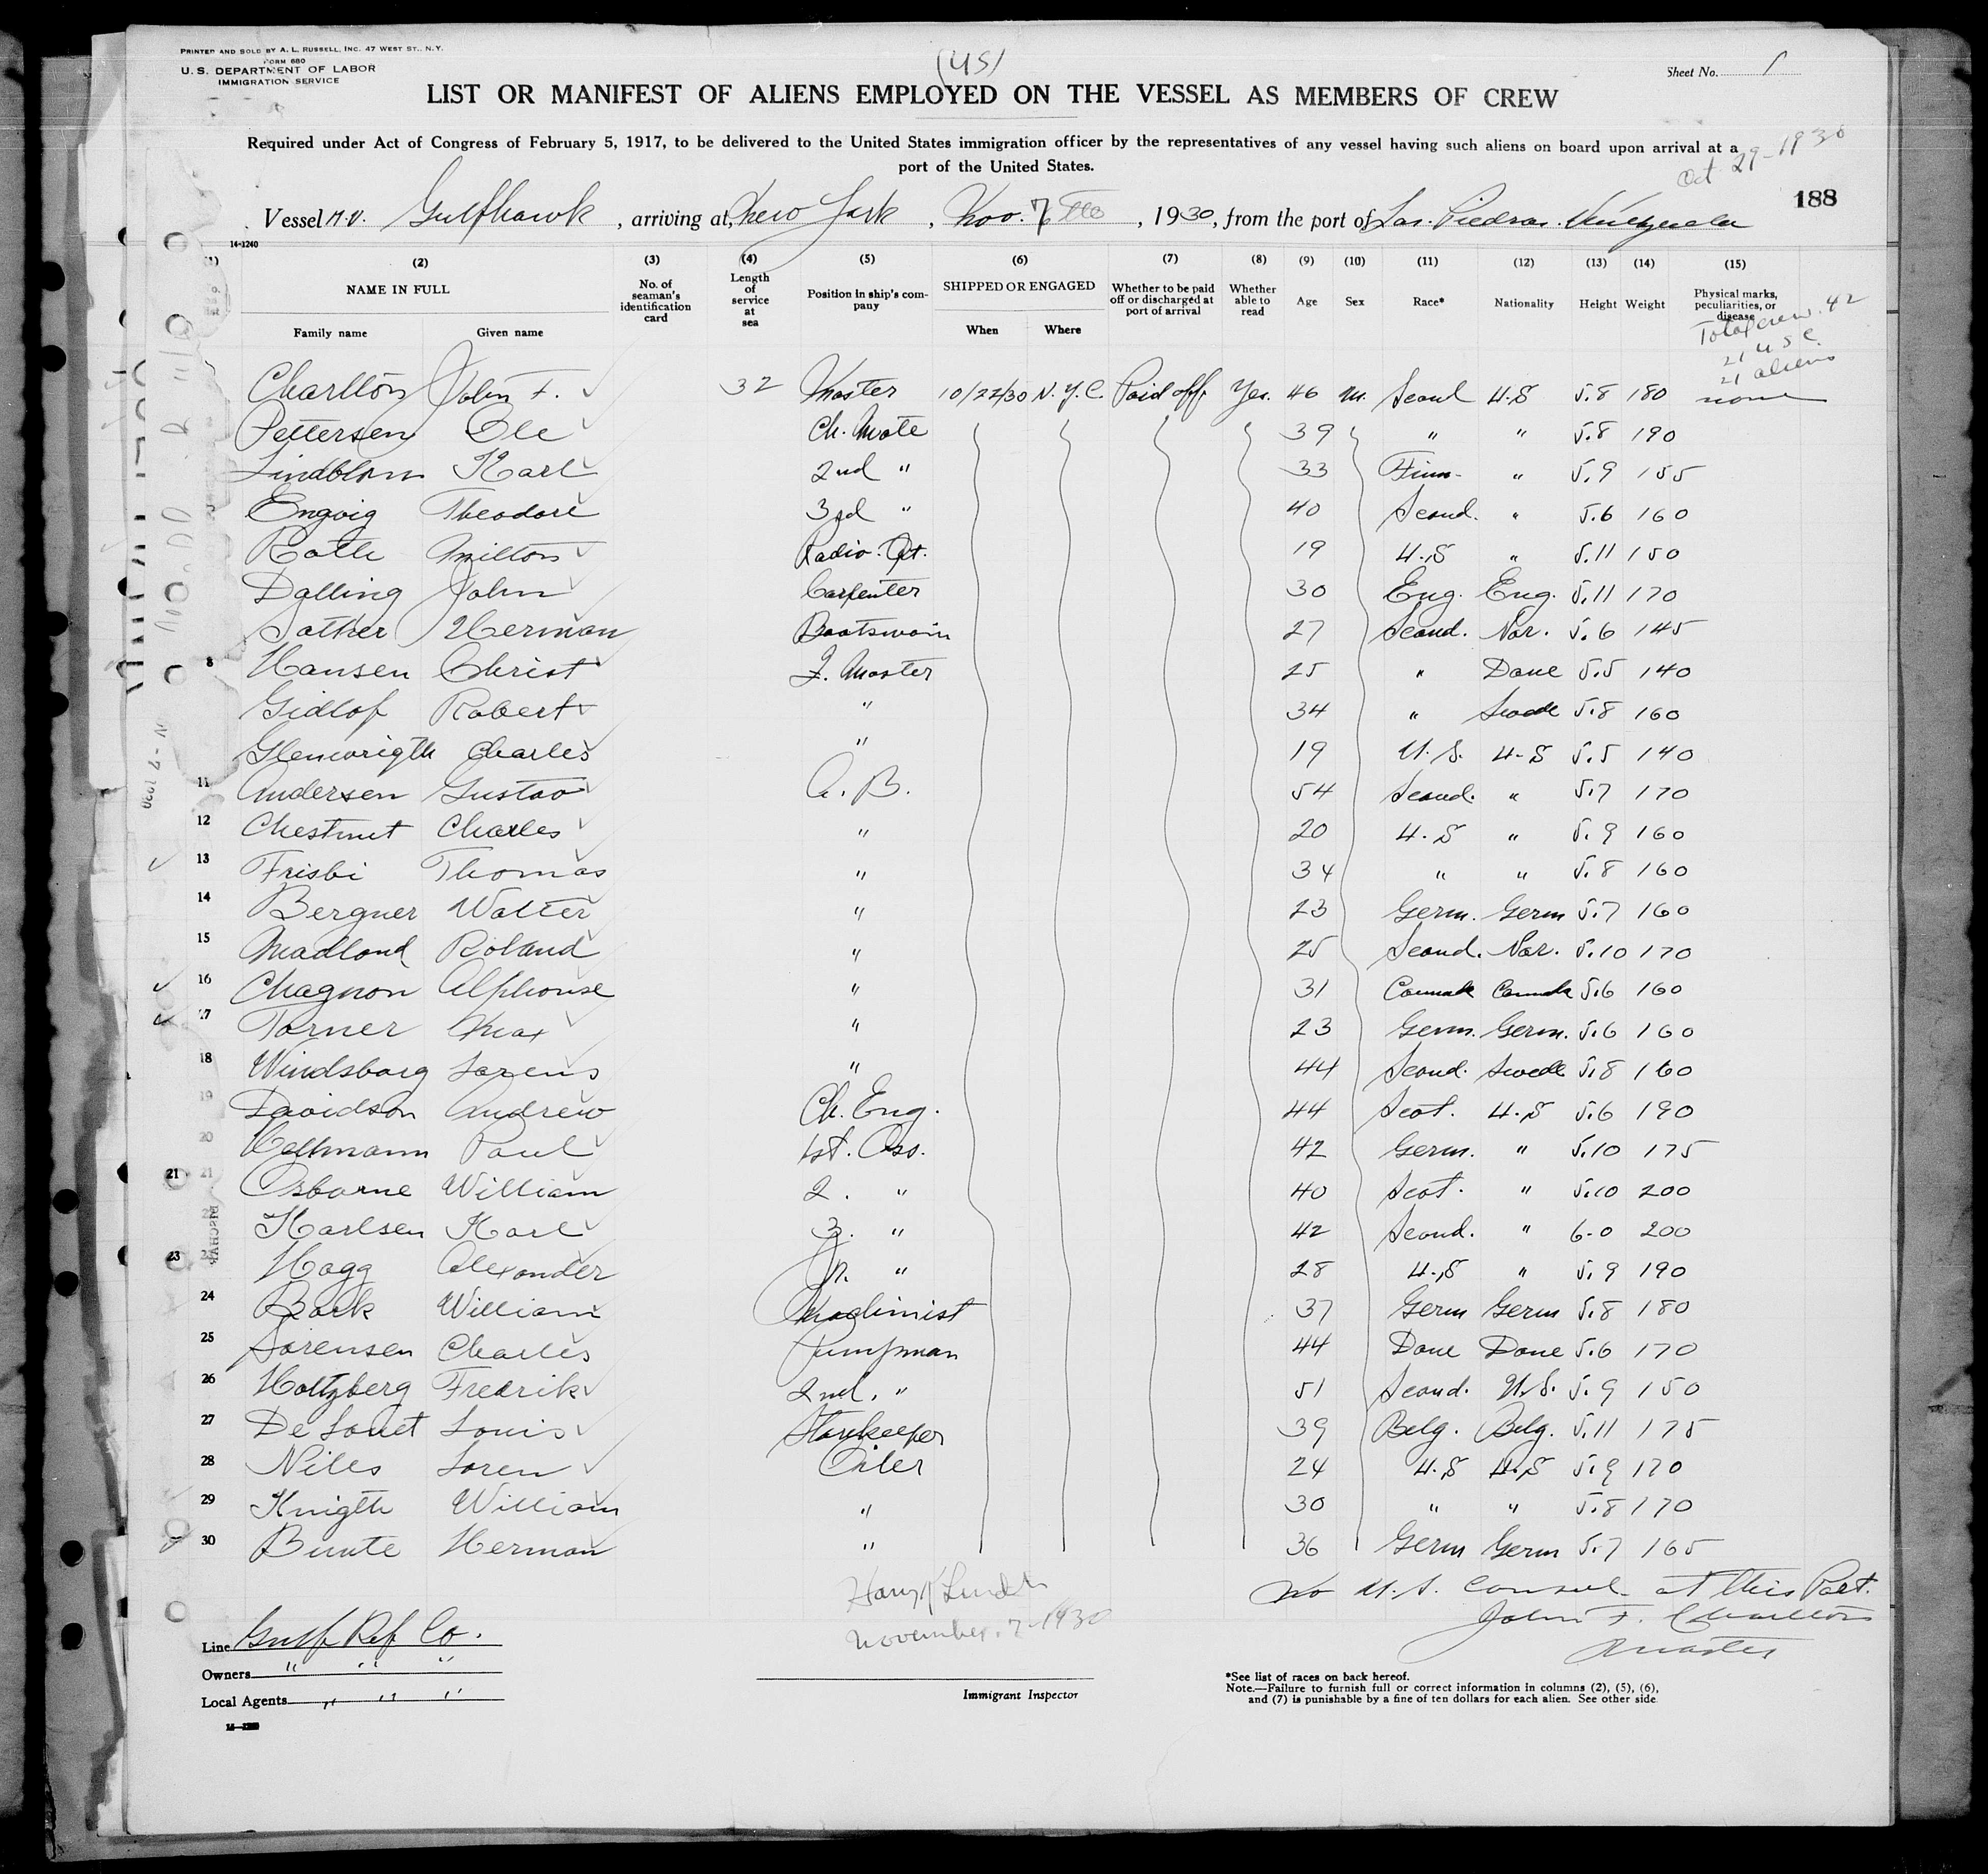 PRINTED AND SOLD BY A. L. RUSSELL, INC. 47 WEST ST., N. Y.
FORM 680
U. S. DEPARTMENT OF LABOR
IMMIGRATION SERVICE
(US)
Sheet No. 1
LIST OR MANIFEST OF ALIENS EMPLOYED ON THE VESSEL AS MEMBERS OF CREW
Required under Act of Congress of February 5, 1917, to be delivered to the United States immigration officer by the representatives of any vessel having such aliens on board upon arrival at a
port of the United States.
Oct 29-1930
188
Vessel M.V. Gulfhawk, arriving at New York, Nov. 7th, 1930, from the port of Las Piedras Venezuela
14-1240
(1) (2) (3) (4) (5) (6) (7) (8) (9) (10) (11) (12) (13) (14) (15)
NAME IN FULL
Family name Given name
No. of seaman's identification card
Length of service at sea
Position in ship's company
SHIPPED OR ENGAGED
When Where
Whether to be paid off or discharged at port of arrival
Whether able to read
Age Sex Race* Nationality Height Weight
Physical marks, peculiarities, or disease
Total crew. 42
21 USC.
21 aliens
Charlton John F. 32 Master 10/22/30 N.Y.C. Paid off Yes. 46 M. Scand U.S 5.8 180 none
Pettersen Ole Ch. Mate 39 " " 5.8 190
Lindblom Karl 2nd " 33 Finn- " 5.9 155
Engvig Theodore 3rd " 40 Scand. " 5.6 160
Rotte Milton Radio. Opt. 19 U.S " 5.11 150
Dalling John Carpenter 30 Eng. Eng. 5.11 170
Sather Herman Boatswain 27 Scand. Nor. 5.6 145
8 Hansen Christ Q. Master 25 " Dane 5.5 140
Gidlof Robert " 34 " Swede 5.8 160
Glenwrigth Charles " 19 U.S. U.S 5.5 140
11 Andersen Gustav A.B. 54 Scand. " 5.7 170
12 Chestnut Charles " 20 U.S " 5.9 160
13 Frisbi Thomas " 34 " " 5.8 160
14 Bergner Walter " 23 Germ. Germ 5.7 160
15 Madland Roland " 25 Scand. Nor. 5.10 170
16 Chagnon Alphonse " 31 5.6 160
17 Torner Max " 23 Germ. Germ. 5.6 160
18 Windsborg Sorens " 44 Scand. Swede 5.8 160
19 Davidson Andrew Ch. Eng. 44 Scot. U.S 5.6 190
20 Paul 1st. Ass. 42 Germ. " 5.10 175
21 21 Osborne William 2. " 40 Scot. " 5.10 200
Karlsen Karl 3. " 42 Scand. " 6-0 200
23 Hogg Alexander Jr. " 28 U.S " 5.9 190
24 Back William Machinist 37 Germ Germ 5.8 180
25 Sorensen Charles Pumpman 44 Dane Dane 5.6 170
26 Holtzberg Fredrik 2nd. " 51 Scand. U.S. 5.9 150
27 De Louis Storekeeper 39 Belg. Belg. 5.11 175
28 Niles Loren Oiler 24 U.S U.S 5.9 170
29 Knigth William " 30 " " 5.8 170
30 Bunte Herman " 36 Germ Germ 5.7 165
No U.S. Consul at this Port.
John F. Charlton
Master
Harry
November. 7-1930
Line Gulf Ref Co.
Owners " " "
Local Agents " " "
Immigrant Inspector
*See list of races on back hereof.
Note.—Failure to furnish full or correct information in columns (2), (5), (6),
and (7) is punishable by a fine of ten dollars for each alien. See other side.